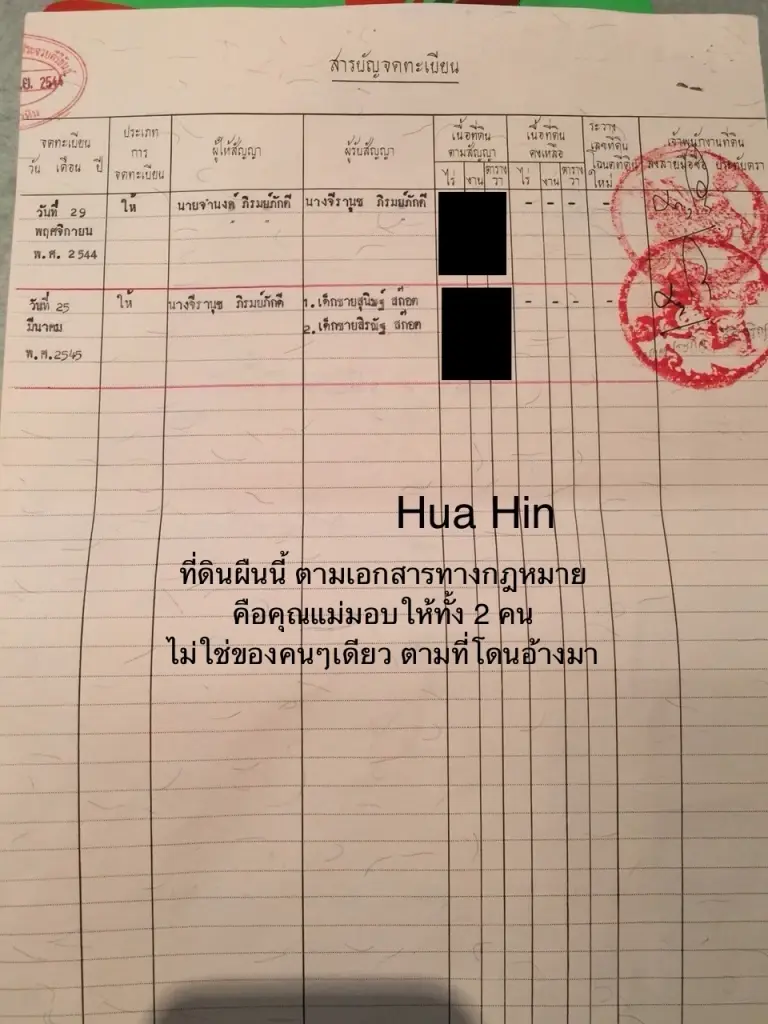 สารบัญจดทะเบียน
ย. 2544
จดทะเบียน
วัน เดือน ปี
ประเภท
การ
จดทะเบียน
ผู้ให้สัญญา
ผู้รับสัญญา
เนื้อที่ดิน
ตามสัญญา
ไร่ งาน ตาราง
วา
เนื้อที่ดิน
คงเหลือ
ไร่ งาน ตาราง
วา
ระวาง
เลขที่ดิน
โฉนดที่ดิน
ใหม่
เจ้าพนักงานที่ดิน
ลงลายมือชื่อ ประทับตรา
วันที่ 29
พฤศจิกายน
พ.ศ. 2544
ให้
นายจำนงค์ ภิรมย์ภักดี
นางจีรานุช ภิรมย์ภักดี
- - - -
วันที่ 25
มีนาคม
พ.ศ. 2545
ให้
นางจีรานุช ภิรมย์ภักดี
1. เด็กชายสุนิษฐ์ สก๊อต
2. เด็กชายสิรณัฐ สก๊อต
- - - -
Hua Hin
ที่ดินผืนนี้ ตามเอกสารทางกฎหมาย
คือคุณแม่มอบให้ทั้ง 2 คน
ไม่ใช่ของคนๆเดียว ตามที่โดนอ้างมา